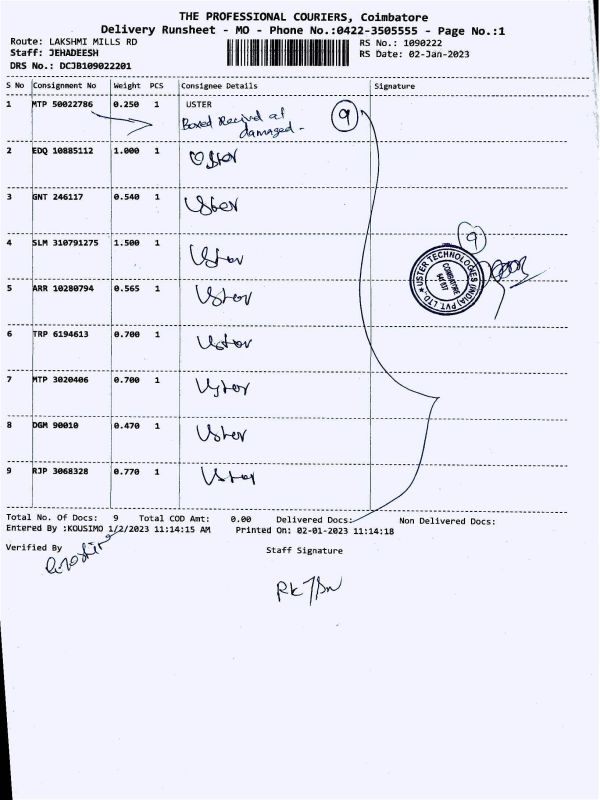 THE PROFESSIONAL COURIERS, Coimbatore
Delivery Runsheet - MO - Phone No.:0422-3505555 - Page No.:1
Route: LAKSHMI MILLS RD RS No.: 1090222
Staff: JEHADEESH RS Date: 02-Jan-2023
DRS No.: DCJB109022201
S No Consignment No Weight PCS Consignee Details Signature
1 MTP 50022786 0.250 1 USTER
Boxed Recived at 9
damaged-
2 EDQ 10885112 1.000 1 Uster
3 GNT 246117 0.540 1 Uster
4 SLM 310791275 1.500 1 Uster 9
USTER TECHNOLOGIES (INDIA) PVT. LTD.
COIMBATORE
641 037
5 ARR 10280794 0.565 1 Uster
6 TRP 6194613 0.700 1 Uster
7 MTP 3020406 0.700 1 Uster
8 DGM 90010 0.470 1 Uster
9 RJP 3068328 0.770 1 Uster
Total No. Of Docs: 9 Total COD Amt: 0.00 Delivered Docs: Non Delivered Docs:
Entered By :KOUSIMO 1/2/2023 11:14:15 AM Printed On: 02-01-2023 11:14:18
Verified By Staff Signature